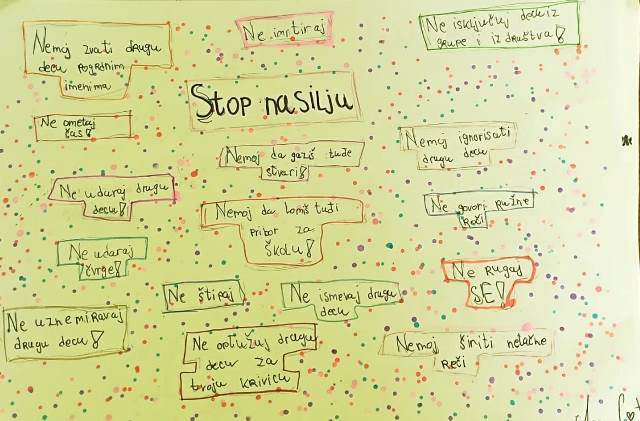 Nemoj zvati drugu
decu pogrdnim
imenima
Ne imitiraj
Ne isključuj decu iz
grupe i iz društva!
Stop nasilju
Ne ometaj
čas!
Nemoj da gaziš tuđe
stvari!
Nemoj ignorisati
drugu decu
Ne udaraj drugu
decu!
Nemoj da lomiš tuđi
pribor za
školu!
Ne govori ružne
reči
Ne udaraj
čvrge!
Ne štipaj
Ne ismevaj drugu
decu
Ne rugaj
SE!
Ne uznemiravaj
drugu decu!
Ne optužuj drugu
decu za
tvoju krivicu
Nemoj širiti netačne
reči